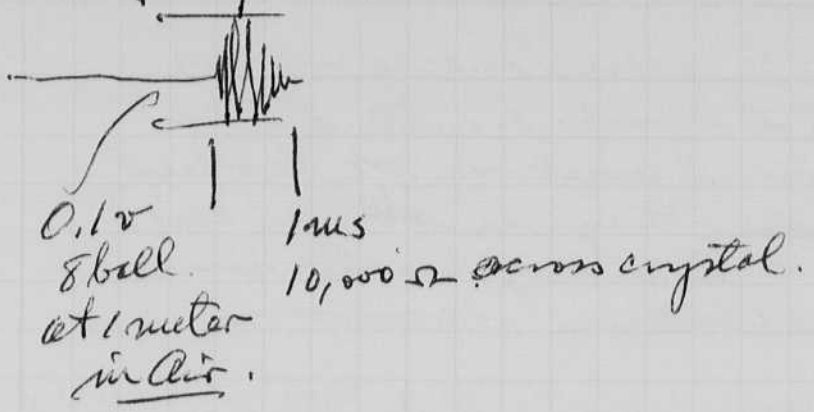 0.1v
8 ball
at 1 meter
in Air.
1 ms
10,000 Ω across crystal.